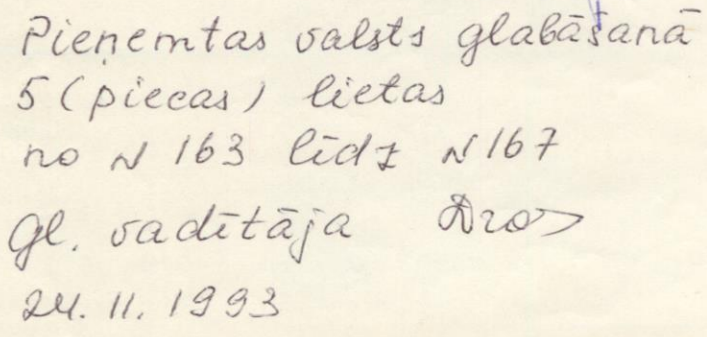 Pieņemtas valsts glabāšanā
5 (piecas) lietas
no N 163 līdz N 167
Gl. vadītāja
24. 11. 1993